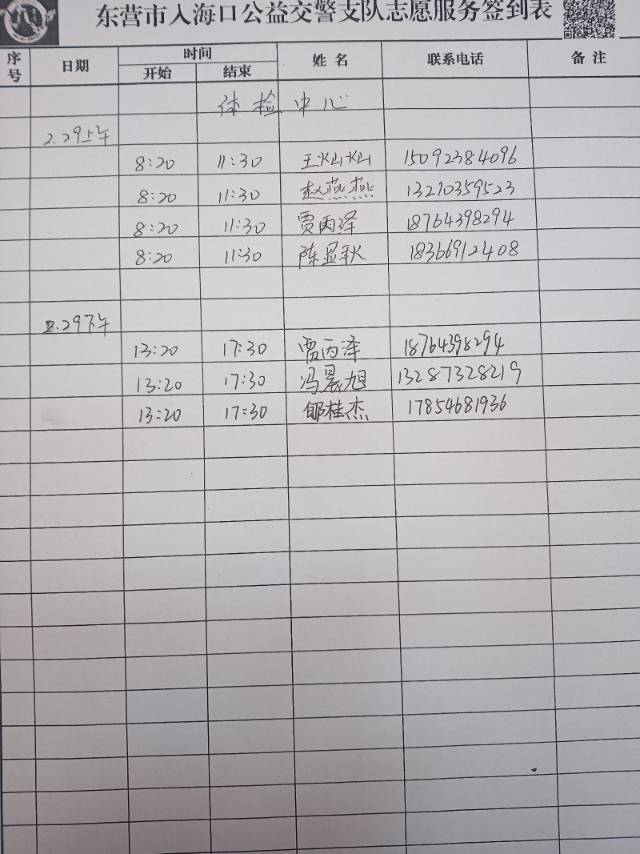 东营市入海口公益交警支队志愿服务签到表
序号 日期 时间 姓名 联系电话 备注
开始 结束
体检中心
2.29上午
8:20 11:30 王灿灿 15092384096
8:20 11:30 赵燕燕 13210359523
8:20 11:30 贾丙泽 18764398294
8:20 11:30 陈显秋 18366912408
2.29下午
13:20 17:30 贾丙泽 18764398294
13:20 17:30 冯晨旭 13287328219
13:20 17:30 郇桂杰 17854681936